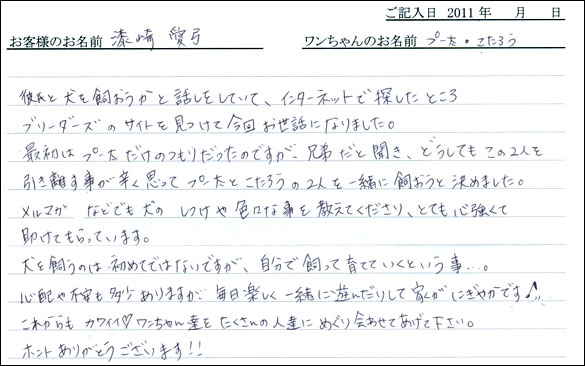 ご記入日 2011 年 月 日
お客様のお名前 漆崎 愛弓 ワンちゃんのお名前 プー太・こたろう
彼氏と犬を飼おうかと話しをしていて、インターネットで探したところ
ブリーダーズのサイトを見つけて今回お世話になりました。
最初はプー太だけのつもりだったのですが、兄弟だと聞き、どうしてもこの2人を
引き離す事が辛く思ってプー太とこたろうの2人を一緒に飼おうと決めました。
メルマガ などでも犬のしつけや色々な事を教えてくださり、とても心強くて
助けてもらっています。
犬を飼うのは初めてではないですが、自分で飼って育てていくという事…。
心配や不安も多少ありますが、毎日楽しく一緒に遊んだりして家がにぎやかです♪
これからもカワイイ♡ワンちゃん達をたくさんの人達にめぐり会わせてあげて下さい。
ホントありがとうございます!!